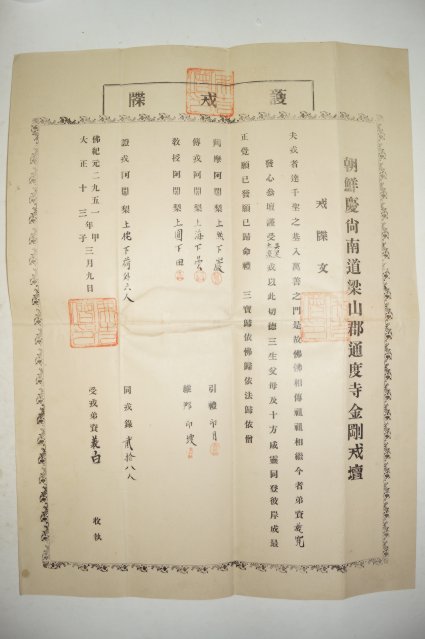 護戒牒
朝鮮慶尙南道梁山郡通度寺金剛戒壇
戒牒文
夫戒者達千聖之基入萬善之門是故佛佛相傳祖祖相繼今者弟資
發心登壇謹受戒以此功德三生父母及十方咸靈同登彼岸成最
正覺願已發願已歸命禮三寶歸依佛歸依法歸依僧
羯摩阿闍梨上下
傳戒阿闍梨上海下曇
教授阿闍梨上圓下田
引禮印月
證戒阿闍梨上下荷外六人
同戒錄貳拾八人
佛紀元二九五一甲
大正十三年子三月九日
受戒弟資義白 收執